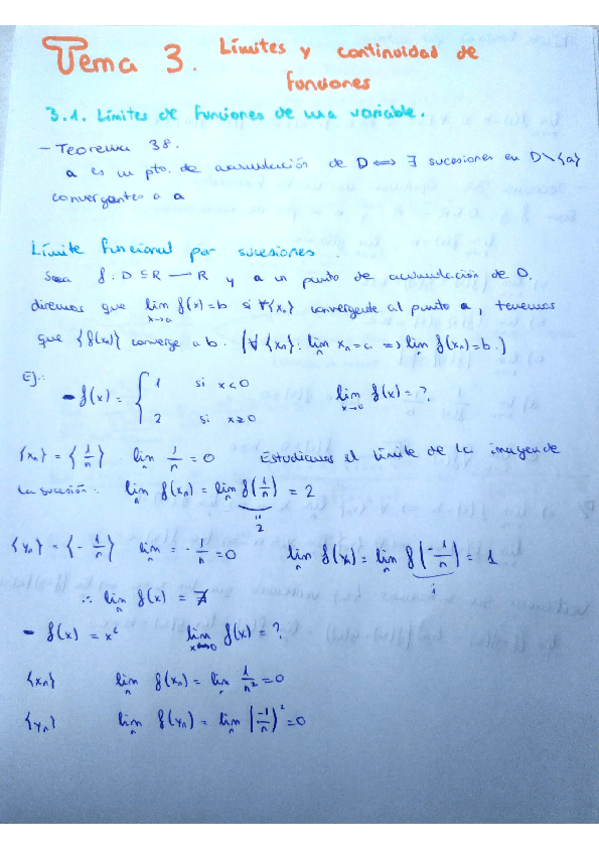 Tema 3. Límites y continuidad de
funciones
3.1. Límites de funciones de una variable.
- Teorema 38.
a es un pto. de acumulación de D ⟺ ∃ sucesiones en D\{a}
convergentes a a
Límite funcional por sucesiones.
Sea f: D ⊆ R → R y a un punto de acumulación de D.
diremos que lim_{x→a} f(x) = b si ∀{xₙ} convergente al punto a, tenemos
que {f(xₙ)} converge a b. (∀{xₙ}: lim_n xₙ = a ⟹ lim_n f(xₙ) = b.)
Ej.:
- f(x) = { 1 si x<0 lim_{x→0} f(x) = ?.
2 si x≥0
{xₙ} = {1/n} lim_n 1/n = 0 Estudiamos el límite de la imagen de
la sucesión: lim_n f(xₙ) = lim_n f(1/n) = 2
"
2
{yₙ} = {-1/n} lim_n = -1/n = 0 lim_n f(yₙ) = lim_n f(-1/n) = 1
1
∴ lim_n f(x) = ∄
- f(x) = x² lim_{x→0} f(x) = ?
{xₙ} lim_n f(xₙ) = lim_n 1/n² = 0
{yₙ} lim_n f(yₙ) = lim_n (-1/n)² = 0